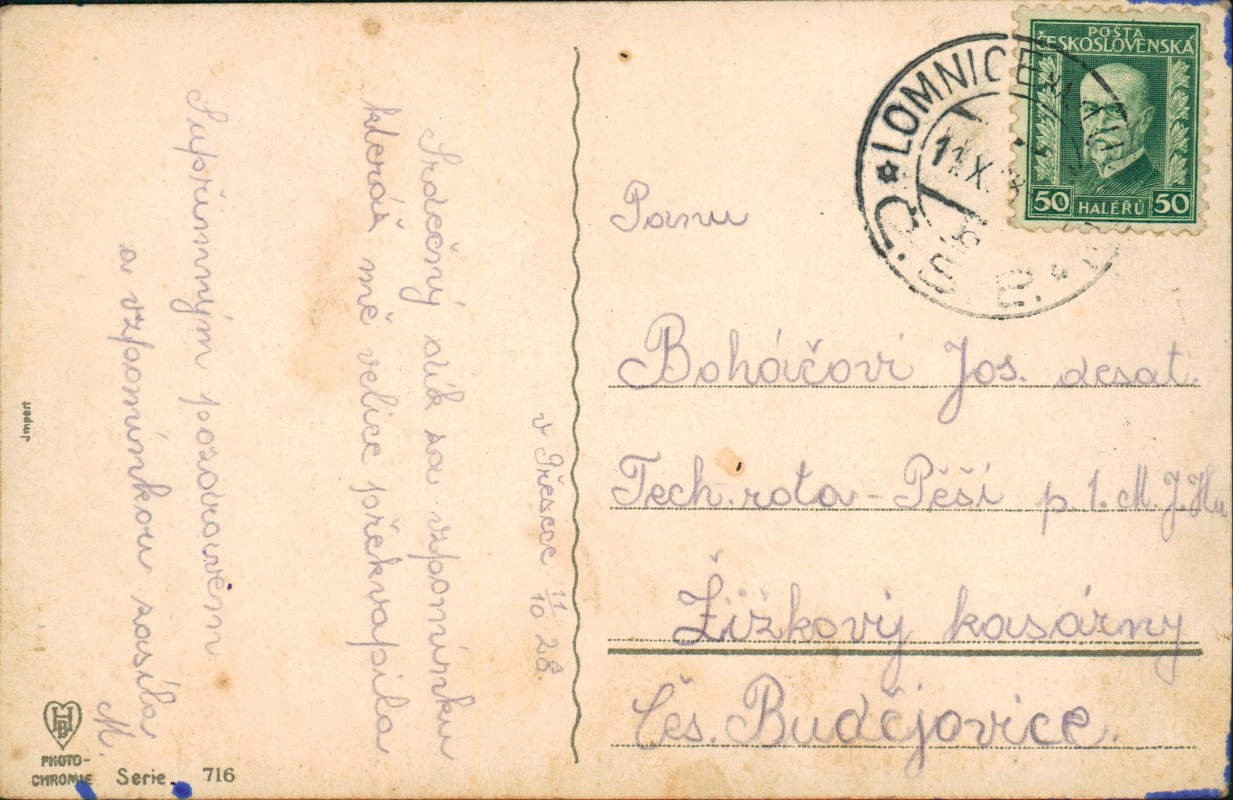 v Třesicce 11/10 28.
Srdečný dík za vzpomínku
kteráž mě velice překvapila.
S upřímným pozdravem
a vzpomínkou zasíla
M.
Panu
Boháčovi Jos. desat.
Tech. rota - Pěší p. 1. M. J. Hu
Žižkovy kasárny
Čes. Budějovice.
POŠTA
ČESKOSLOVENSKÁ
50 HALÉŘŮ 50
LOMNICE N.
11. X.
Jmpert
HB
PHOTO-
CHROMIE Serie 716